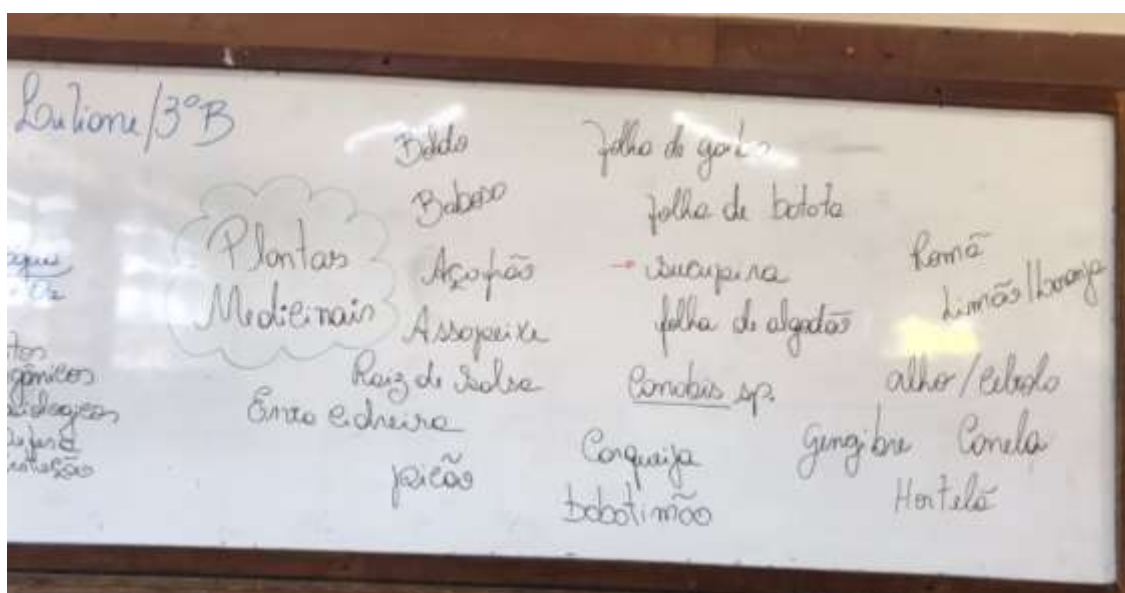 Luliane/3ºB
Plantas
Medicinais
Boldo
Babosa
Açafrão
Assapeixe
Raiz de Salsa
Erva Cidreira
picão
folha de
folha de batata
→ sucupira
folha de algodão
Canabis sp.
Carqueija
babatimão
Romã
Limão/laranja
alho/cebola
Gengibre Canela
Hortelã